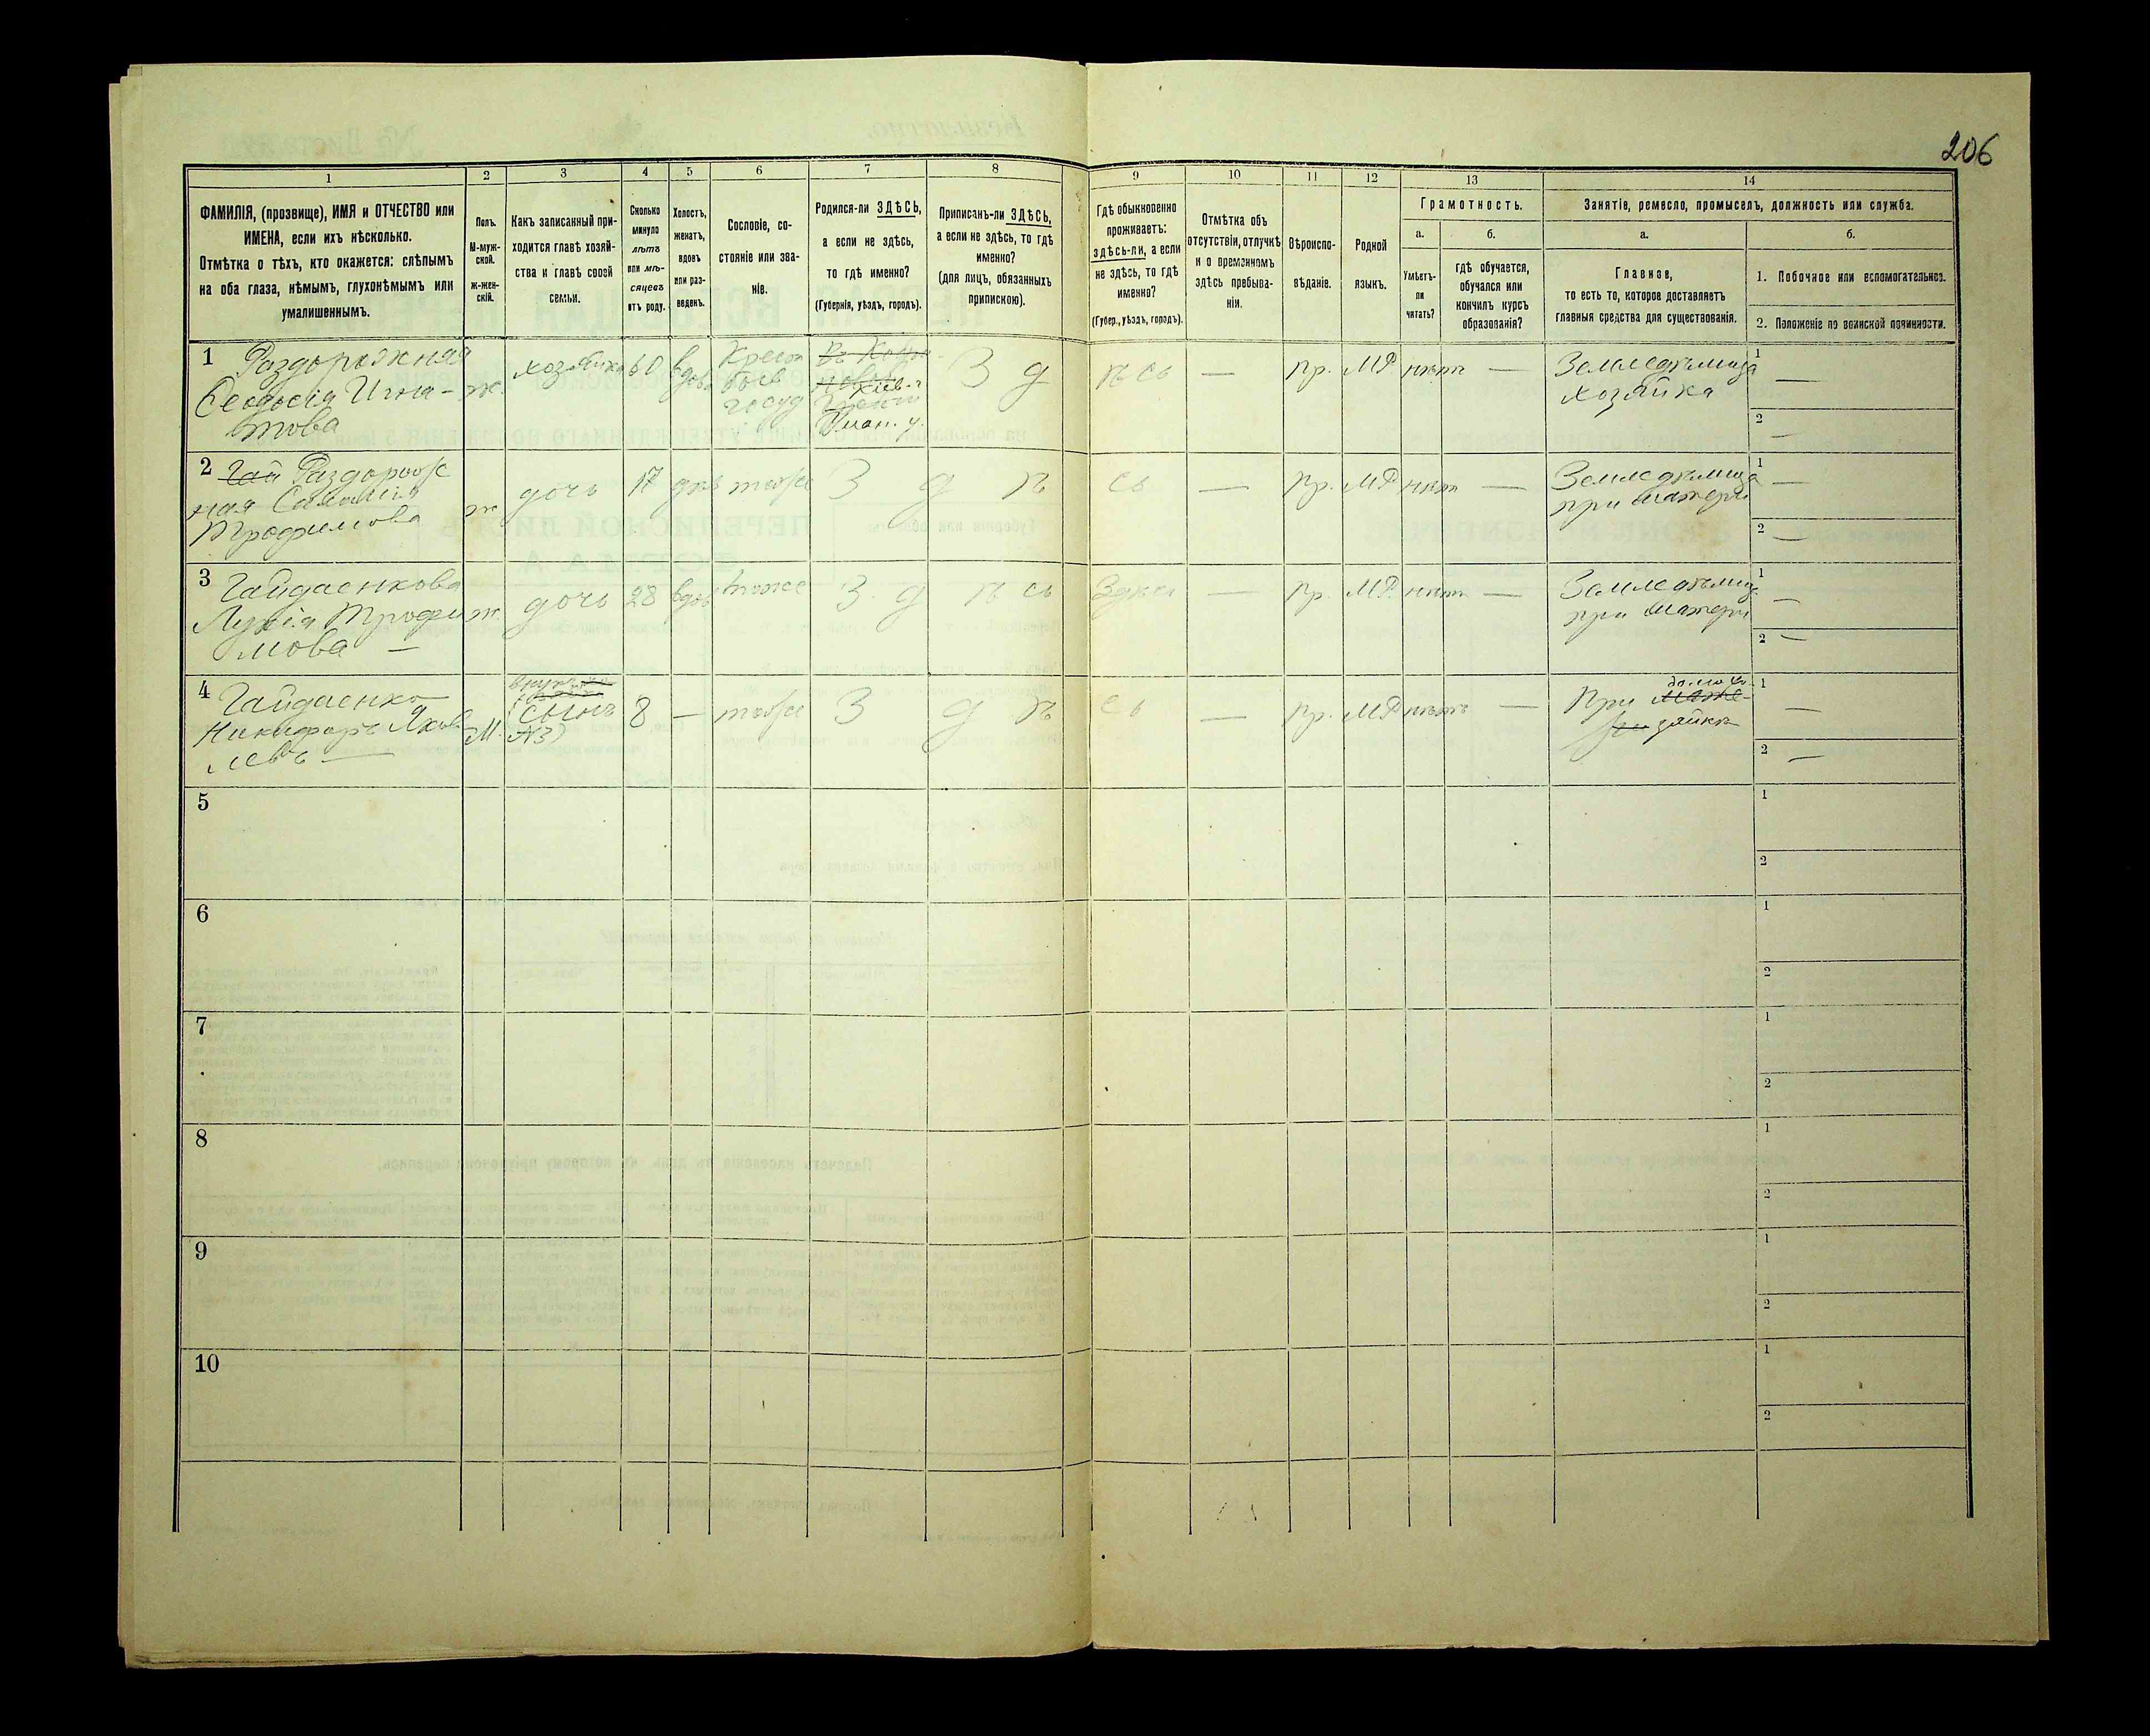 206
1 2 3 4 5 6 7 8 9 10 11 12 13 14
ФАМИЛІЯ, (прозвище), ИМЯ и ОТЧЕСТВО или
ИМЕНА, если ихъ нѣсколько.
Отмѣтка о тѣхъ, кто окажется: слѣпымъ
на оба глаза, нѣмымъ, глухонѣмымъ или
умалишеннымъ.
Полъ.
М-муж-
ской.
Ж-жен-
скій.
Какъ записанный при-
ходится главѣ хозяй-
ства и главѣ своей
семьи.
Сколько
минуло
лѣтъ
или мѣ-
сяцевъ
отъ роду.
Холостъ,
женатъ,
вдовъ
или раз-
веденъ.
Сословіе, со-
стояніе или зва-
ніе.
Родился-ли ЗДѢСЬ,
а если не здѣсь,
то гдѣ именно?
(Губернія, уѣздъ, городъ).
Приписанъ-ли ЗДѢСЬ,
а если не здѣсь, то гдѣ
именно?
(для лицъ, обязанныхъ
припискою).
Гдѣ обыкновенно
проживаетъ:
здѣсь-ли, а если
не здѣсь, то гдѣ
именно?
(Губер., уѣздъ, городъ).
Отмѣтка объ
отсутствіи, отлучкѣ
и о временномъ
здѣсь пребыва-
ніи.
Вѣроиспо-
вѣданіе.
Родной
языкъ.
Грамотность.
а.
Умѣетъ-
ли
читать?
б.
гдѣ обучается,
обучался или
кончилъ курсъ
образованія?
Занятіе, ремесло, промыселъ, должность или служба.
а.
Главное,
то есть то, которое доставляетъ
главныя средства для существованія.
б.
1. Побочное или вспомогательное.
2. Положеніе по воинской повинности.
1 Раздорожная
Ѳеодосія Игна-
това
ж. хозяйка 60 вдов.
Крест
бывш
госуд
Кіев. г
Уман. у.
З д ѣ сь — пр. МР нѣтъ —
Земледѣлица
хозяйка
1 —
2 —
2 Гай Раздорож
ная
Трофимова
ж дочь 17 дѣв тоже З д ѣ сь — пр. МР нѣтъ —
Земледѣлица
при матери
1 —
2 —
3 Гайдаенкова
Лукія Трофи
мова —
ж. дочь 28 вдов тоже З д ѣ сь Здѣсь — пр. МР. нѣтъ —
Земледѣлица
при матери
1 —
2 —
4 Гайдаенко
Никифоръ Яков
левъ —
М.
внукъ
(сынъ
№3)
8 — тоже З д ѣ сь — пр. МР нѣтъ —
При
зяйкѣ
1 —
2 —
5
1
2
6
1
2
7
1
2
8
1
2
9
1
2
10
1
2